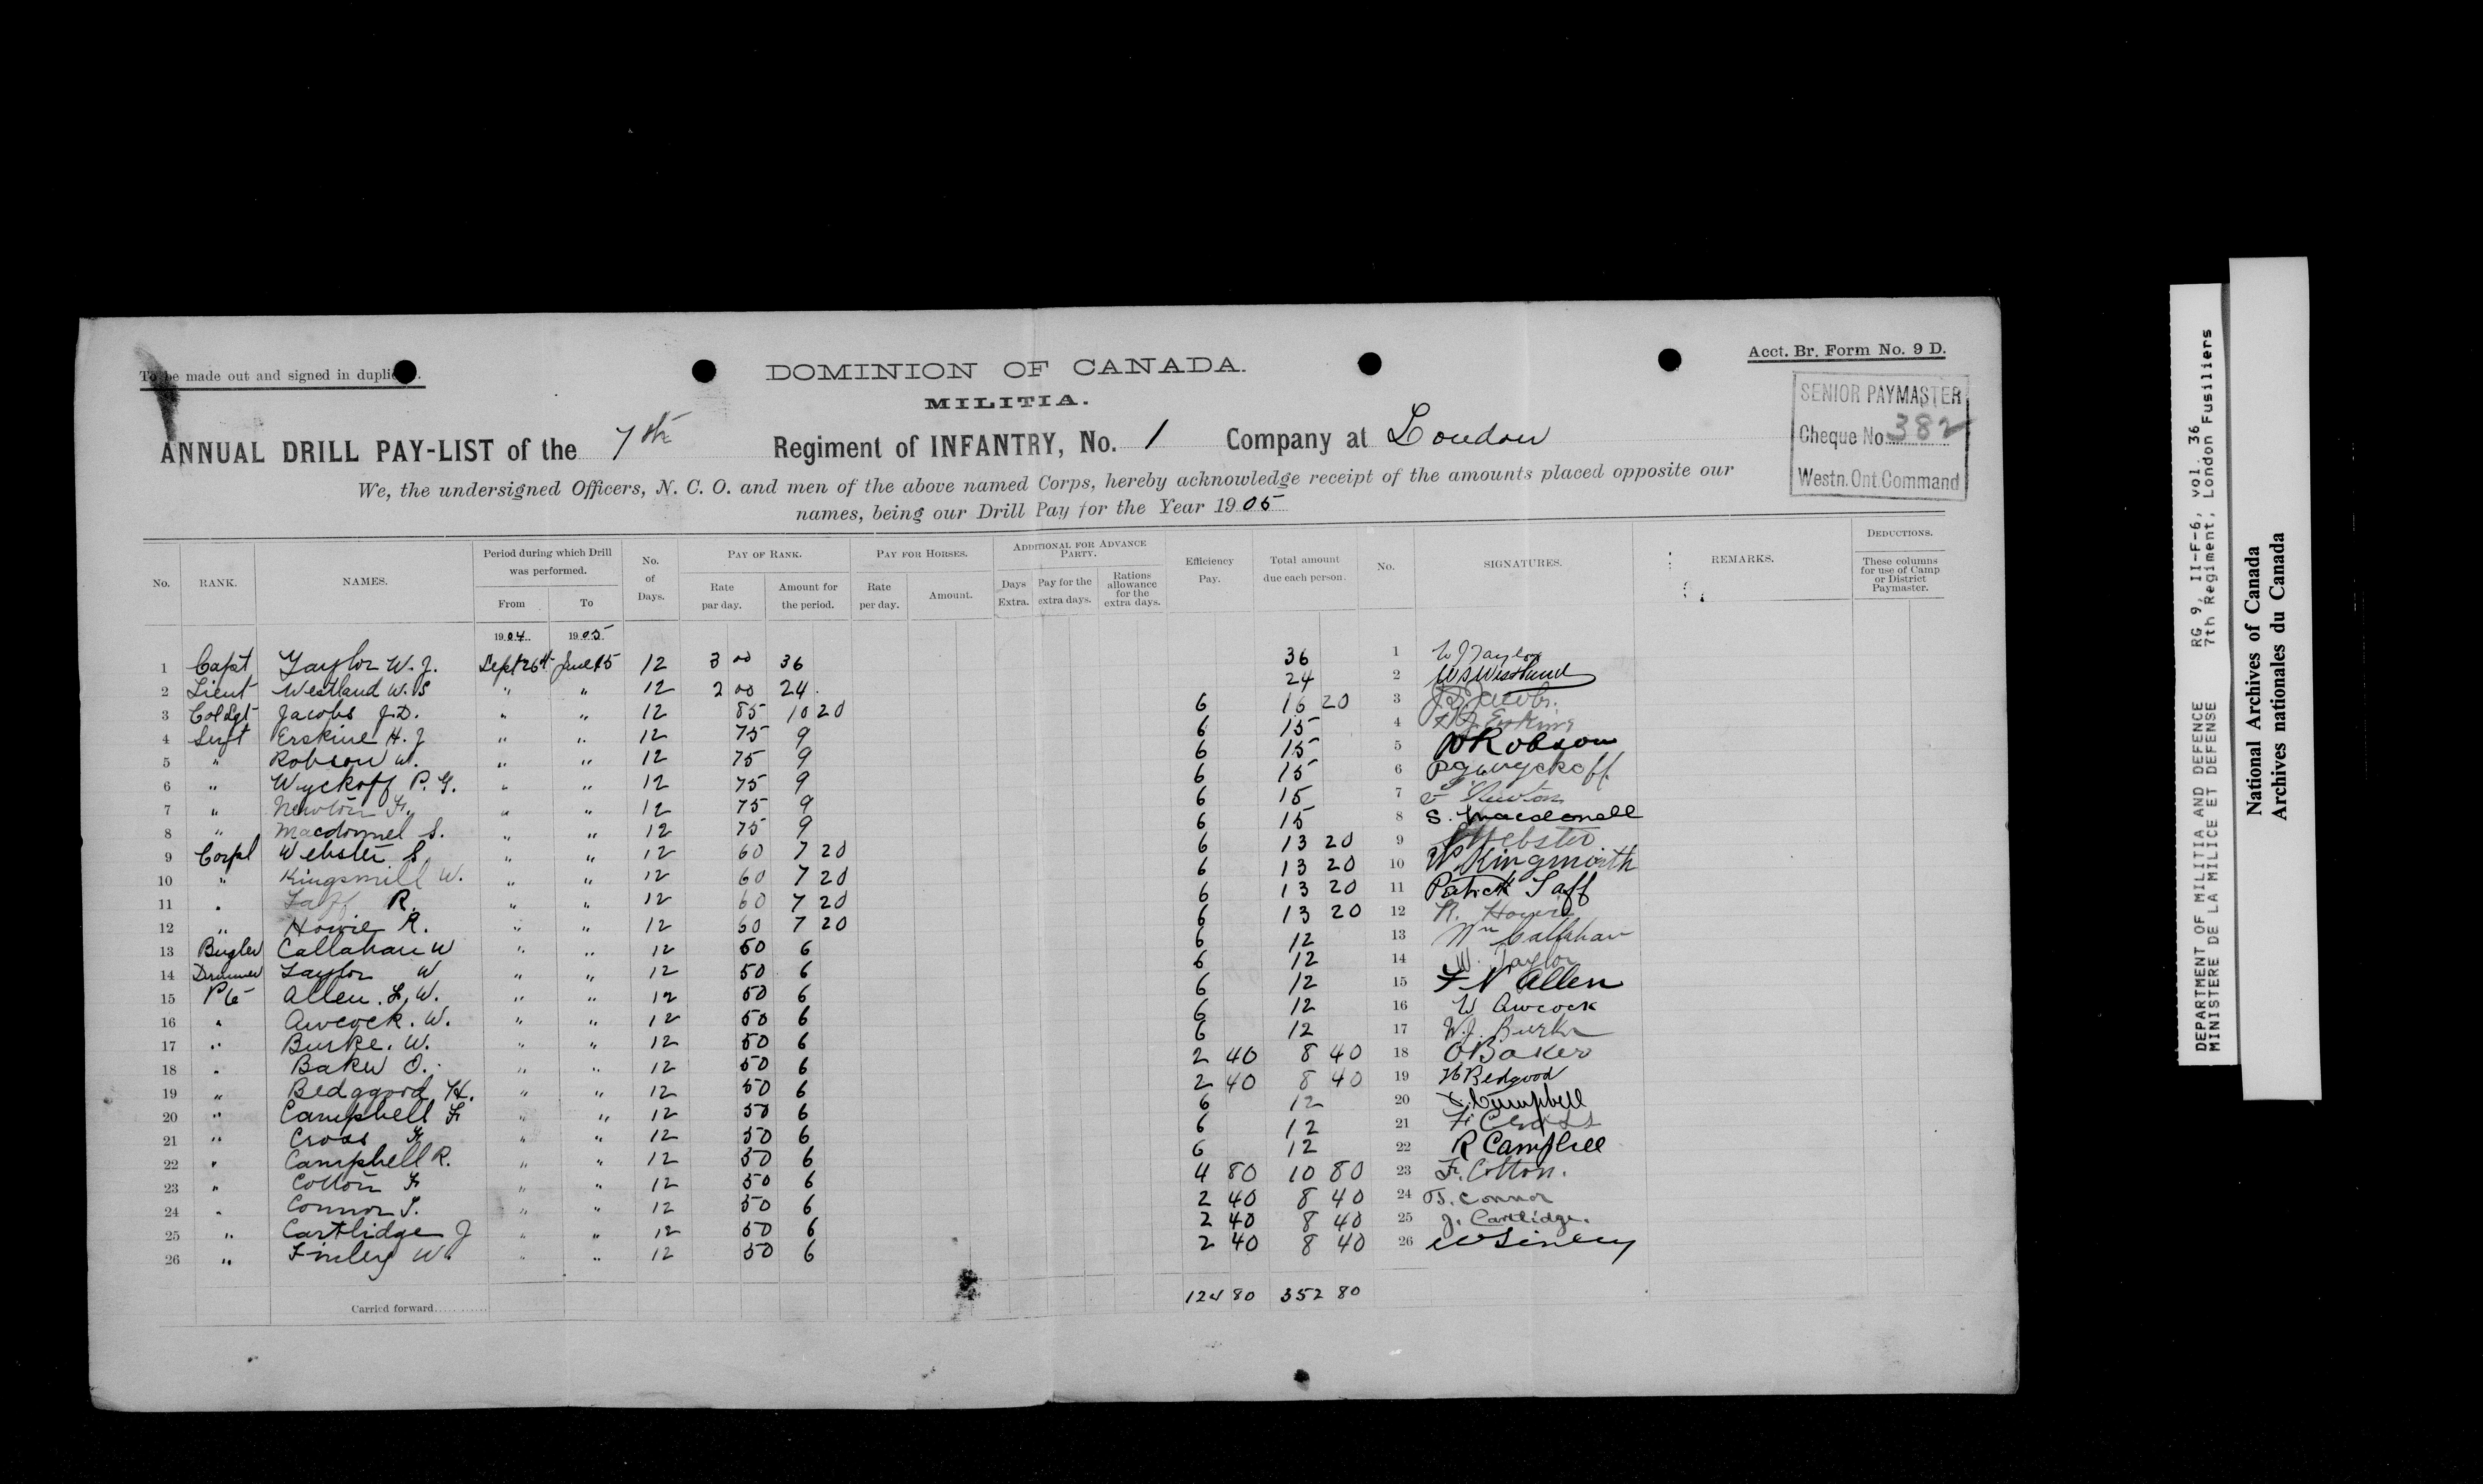 To be made out and signed in duplic.
Acct. Br. Form No. 9 D.
DOMINION OF CANADA.
MILITIA.
SENIOR PAYMASTER
Cheque No. 382
Westn. Ont. Command
ANNUAL DRILL PAY-LIST of the 7th Regiment of INFANTRY, No. 1 Company at London
We, the undersigned Officers, N. C. O. and men of the above named Corps, hereby acknowledge receipt of the amounts placed opposite our
names, being our Drill Pay for the Year 1905
No. RANK. NAMES. Period during which Drill was performed. From To No. of Days. PAY OF RANK. Rate par day. Amount for the period. PAY FOR HORSES. Rate per day. Amount. ADDITIONAL FOR ADVANCE PARTY. Days Extra. Pay for the extra days. Rations allowance for the extra days. Efficiency Pay. Total amount due each person. No. SIGNATURES. REMARKS. DEDUCTIONS. These columns for use of Camp or District Paymaster.
1904 1905
1 Capt Taylor W. J. Sept 26th June 15 12 3 00 36 36 1 W J Taylor
2 Lieut Westland W. S " " 12 2 00 24. 24 2 W S Westland
3 Col Sgt Jacobs J. D. " " 12 85 10 20 6 16 20 3 J D Jacobs.
4 Sergt Erskine H. J " " 12 75 9 6 15 4 H J Erskine
5 " Robson W. " " 12 75 9 6 15 5 W Robson
6 " Wyckoff P. G. " " 12 75 9 6 15 6 P G Wyckoff
7 " Newton Fr. " " 12 75 9 6 15 7 Newton
8 " Macdonnel S. " " 12 75 9 6 15 8 S. Macdonell
9 Corpl Webster S " " 12 60 7 20 6 13 20 9 S Webster
10 " Kingsmill W. " " 12 60 7 20 6 13 20 10 W. Kingsmorth
11 " Taff R. " " 12 60 7 20 6 13 20 11 Patrick Taff
12 " Howie R. " " 12 60 7 20 6 13 20 12 R. Howie
13 Bugler Callahan W " " 12 50 6 6 12 13 Wm Callahan
14 Drummer Taylor W " " 12 50 6 6 12 14 W. Taylor
15 Pte Allen. F. W. " " 12 50 6 6 12 15 F W Allen
16 " Awcock. W. " " 12 50 6 6 12 16 W Awcock
17 " Burke. W. " " 12 50 6 6 12 17 W. J. Burke
18 " Baker O. " " 12 50 6 2 40 8 40 18 O Baker
19 " Bedggord H. " " 12 50 6 2 40 8 40 19 H Bedgood
20 " Campbell Fr " " 12 50 6 6 12 20 Campbell
21 " Cross Fr " " 12 50 6 6 12 21 F Cross
22 " Campbell R. " " 12 50 6 6 12 22 R Campbell
23 " Cotton Fr " " 12 50 6 4 80 10 80 23 Fr. Cotton.
24 " Connor T. " " 12 50 6 2 40 8 40 24 T. Connor
25 " Cartlidge J " " 12 50 6 2 40 8 40 25 J. Cartlidge.
26 " Finley W. " " 12 50 6 2 40 8 40 26 W Finley
Carried forward 124 80 352 80
DEPARTMENT OF MILITIA AND DEFENCE RG 9, II-F-6, vol. 36
MINISTERE DE LA MILICE ET DEFENSE 7th Regiment, London Fusiliers
National Archives of Canada
Archives nationales du Canada